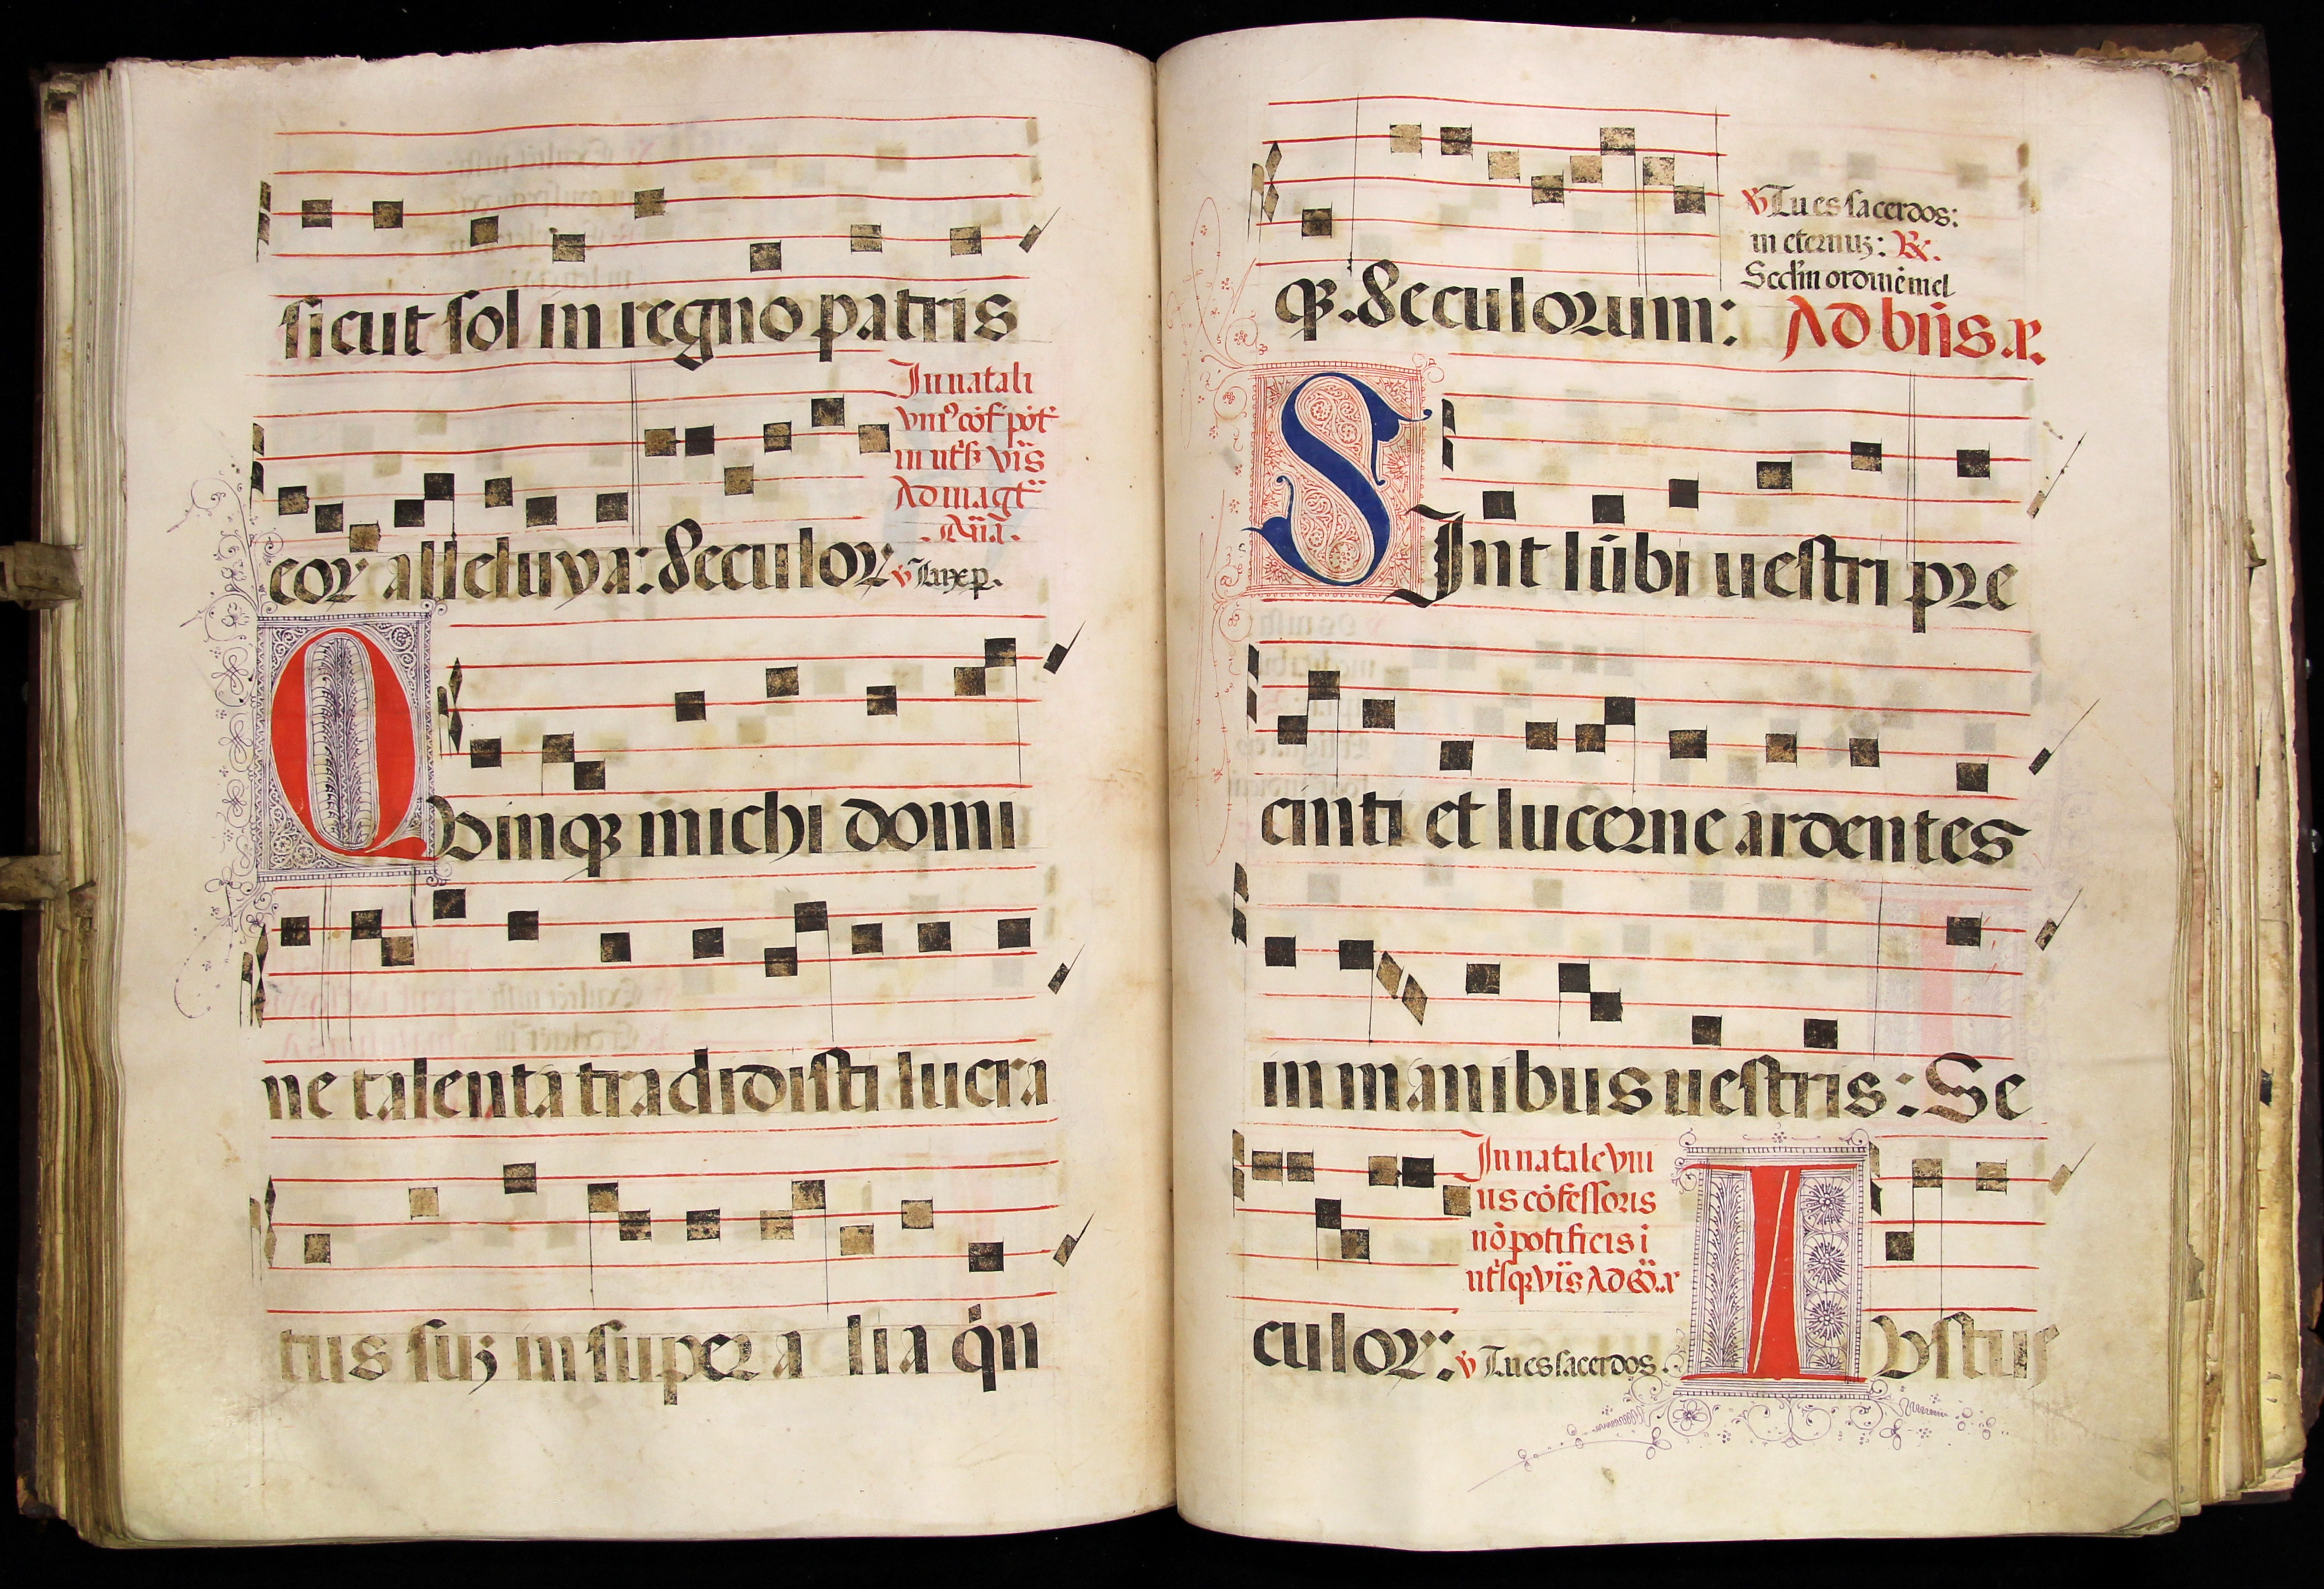 sicut sol in regno patris
In natali
vniꝰ cōf pōt
in utsꝫ vīs
Ad magt
Aña.
eoꝝ alleluya: Seculoꝝ ℣ Iux p.
Quinqꝫ michi domi
ne talenta tradidisti lucra
tus suꝫ insuper alia qͥn
qꝫ. Seculorum:
℣ Tu es sacerdos:
in eternuꝫ: ℟.
Scd'm ordinē mel
Ad bn̄s. a.
SInt lūbi uestri pre
cinti et lucerne ardentes
in manibus uestris: Se
In natale vni
us cōfessoris
nō pōtificis i
utsqꝫ vīs Ad
culoꝝ: ℣ Tu es sacerdos.
Iustus